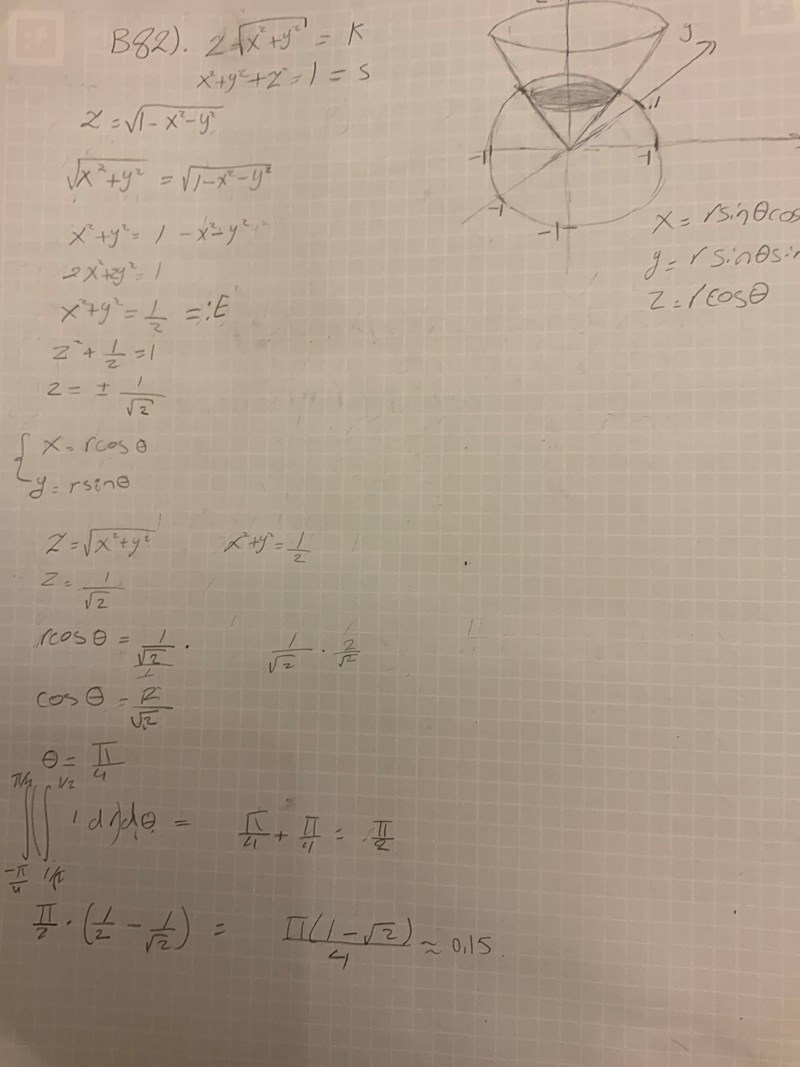 B82). z √x²+y² = K
x²+y²+z² = 1 = S
z = √1-x²-y²
√x²+y² = √1-x²-y²
x²+y² = 1 - x²-y²
2x²+2y² = 1
x²+y² = 1/2 =: E
z² + 1/2 = 1
z = ± 1/√2
{ x = rcosθ
y = rsinθ
z = √x²+y² x²+y² = 1/2
z = 1/√2
rcosθ = 1/√2 · 1/√2 · 2/√2
θ = π/4
1 dr dθ = π/4 + π/4 = π/2
π/2 · (1/2 - 1/√2) = π(1-√2)/4 ≈ 0,15.
y
-1
-1
-1
-1
x = rsinθcos
y = rsinθsin
z = rcosθ